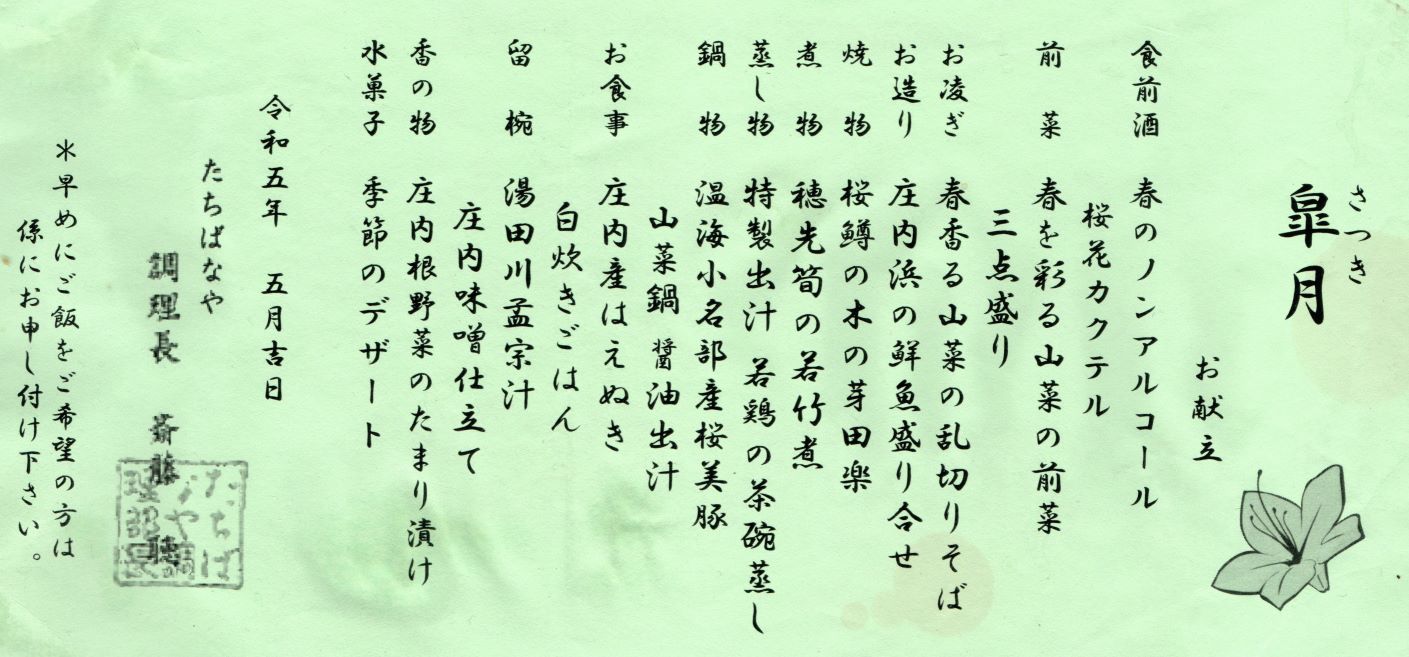 さつき
皐月
お献立
食前酒 春のノンアルコール
桜花カクテル
前菜 春を彩る山菜の前菜
三点盛り
お凌ぎ 春香る山菜の乱切りそば
お造り 庄内浜の鮮魚盛り合せ
焼物 桜鱒の木の芽田楽
煮物 穂先筍の若竹煮
蒸し物 特製出汁 若鶏の茶碗蒸し
鍋物 温海小名部産桜美豚
山菜鍋 醤油出汁
お食事 庄内産はえぬき
白炊きごはん
留椀 湯田川孟宗汁
庄内味噌仕立て
香の物 庄内根野菜のたまり漬け
水菓子 季節のデザート
令和五年 五月吉日
たちばなや
調理長 斎藤 聰
たちば
なや調
理部長
＊早めにご飯をご希望の方は
係にお申し付け下さい。